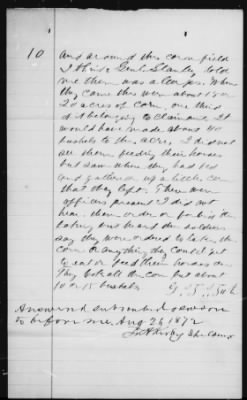 10 And around this corn field
I think Genl. Stanley told
me there was a Corps. When
they came there were about 15 or
20 acres of corn, one third
of it belonging to claimant. It
would have made about 40
bushels to the acre. I did not
see them feeding their horses
but saw when they had got
and gathered up a little corn
that they left. There were
officers present I did not
hear them order or forbid the
taking but heard the soldiers
say they were ordered to take the
corn or anything they could get
to eat or feed their horses on
They took all the corn but about
10 or 15 bushels.
Answered subscribed & sworn
to before me Aug 26 1872
Spl. Comr.